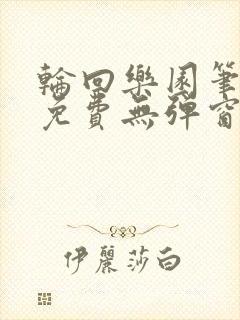 輪回樂園筆
免費無彈窗
伊麗莎白